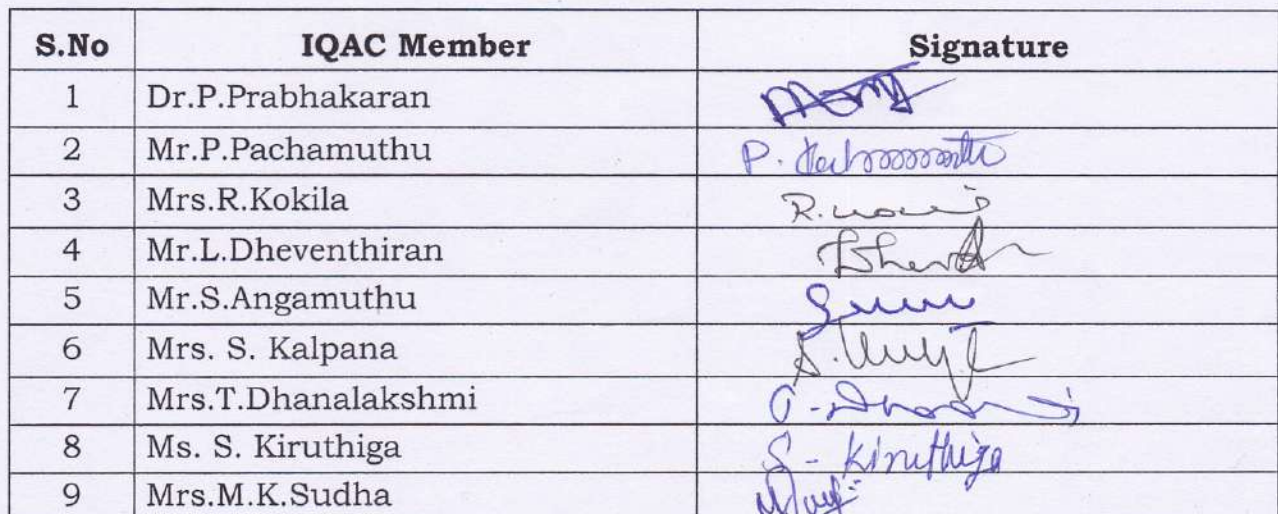 S.No IQAC Member Signature
1 Dr.P.Prabhakaran
2 Mr.P.Pachamuthu P.
3 Mrs.R.Kokila R.
4 Mr.L.Dheventhiran
5 Mr.S.Angamuthu
6 Mrs. S. Kalpana S.
7 Mrs.T.Dhanalakshmi
8 Ms. S. Kiruthiga S - Kiruthiga
9 Mrs.M.K.Sudha